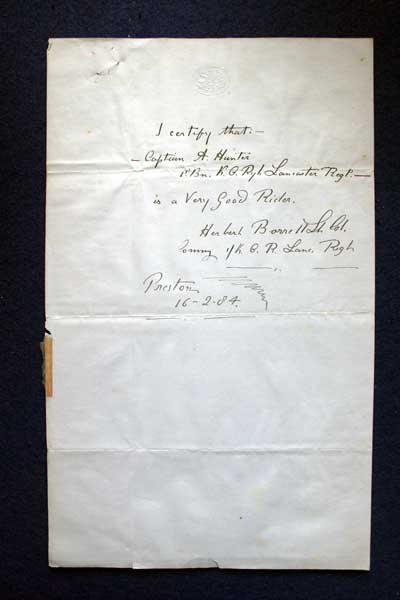 I certify that:-
- Captain A. Hunter
1st Bn. K. O. Ryl. Lancaster Regt. -
is a Very Good Rider.
Herbert Borrett Lt. Col.
Commg 1/K. O. R. Lanc. Regt
Preston
16-2-84.